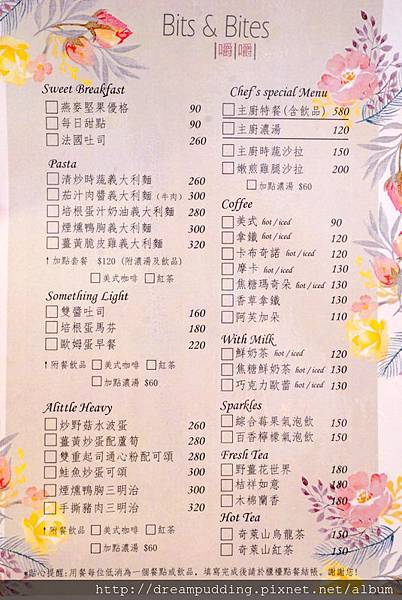 Bits & Bites
|嚼|嚼|
Sweet Breakfast
□燕麥堅果優格 90
□每日甜點 90
□法國吐司 260
Pasta
□清炒時蔬義大利麵 260
□茄汁肉醬義大利麵(牛肉) 300
□培根蛋汁奶油義大利麵 280
□煙燻鴨胸義大利麵 300
□薑黃脆皮雞義大利麵 320
↑加點套餐 $120 (附濃湯及飲品)
□美式咖啡 □紅茶
Something Light
□雙醬吐司 160
□培根蛋馬芬 180
□歐姆蛋早餐 220
↑附餐飲品 □美式咖啡 □紅茶
□加點濃湯 $60
Alittle Heavy
□炒野菇水波蛋 260
□薑黃炒蛋配蘆筍 280
□雙重起司通心粉配可頌 280
□鮭魚炒蛋可頌 280
□煙燻鴨胸三明治 300
□手撕豬肉三明治 320
↑附餐飲品 □美式咖啡 □紅茶
□加點濃湯 $60
Chef's special Menu
□主廚特餐(含飲品) 580
□主廚濃湯 120
□主廚時蔬沙拉 150
□嫩煎雞腿沙拉 200
□加點濃湯 $60
Coffee
□美式 hot / iced 90
□拿鐵 hot / iced 120
□卡布奇諾 hot / iced 120
□摩卡 hot / iced 130
□焦糖瑪奇朵 hot / iced 130
□香草拿鐵 130
□阿芙加朵 110
With Milk
□鮮奶茶 hot / iced 120
□焦糖鮮奶茶 hot / iced 130
□巧克力歐蕾 hot / iced 130
Sparkles
□綜合莓果氣泡飲 150
□百香檸檬氣泡飲 150
Fresh Tea
□野薑花世界 180
□桔祥如意 180
□木棉蘭香 180
Hot Tea
□奇萊山烏龍茶 150
□奇萊山紅茶 150
*貼心提醒:用餐每位低消為一個餐點或飲品，填寫完成後請於櫃檯點餐結帳。謝謝您!
http://dreampudding.pixnet.net/album